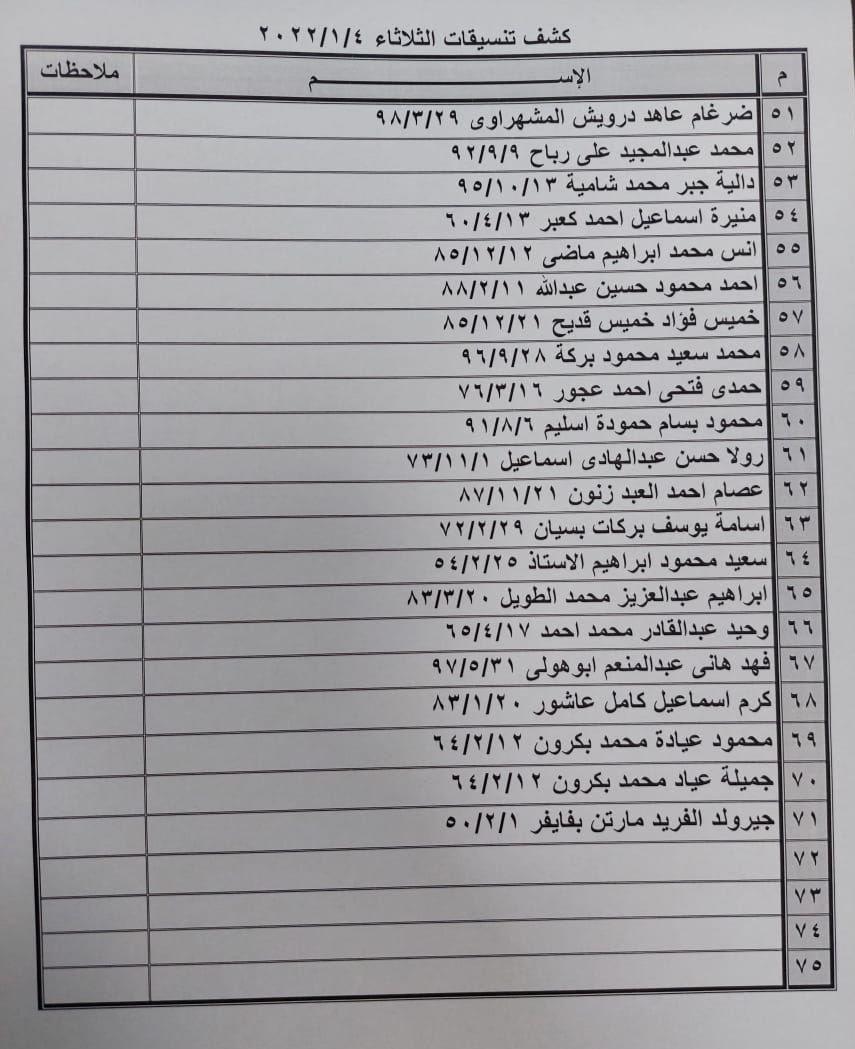 كشف تنسيقات الثلاثاء ٢٠٢٢/١/٤
م الإســـــــــــــــــــــــم ملاحظات
٥١ ضرغام عاهد درويش المشهراوى ٩٨/٣/٢٩
٥٢ محمد عبدالمجيد على رباح ٩٢/٩/٩
٥٣ دالية جبر محمد شامية ٩٥/١٠/١٣
٥٤ منيرة اسماعيل احمد كعبر ٦٠/٤/١٣
٥٥ انس محمد ابراهيم ماضى ٨٥/١٢/١٢
٥٦ احمد محمود حسين عبدالله ٨٨/٢/١١
٥٧ خميس فؤاد خميس قديح ٨٥/١٢/٢١
٥٨ محمد سعيد محمود بركة ٩٦/٩/٢٨
٥٩ حمدى فتحى احمد عجور ٧٦/٣/١٦
٦٠ محمود بسام حمودة اسليم ٩١/٨/٦
٦١ رولا حسن عبدالهادى اسماعيل ٧٣/١١/١
٦٢ عصام احمد العبد زنون ٨٧/١١/٢١
٦٣ اسامة يوسف بركات بسيان ٧٢/٢/٢٩
٦٤ سعيد محمود ابراهيم الاستاذ ٥٤/٢/٢٥
٦٥ ابراهيم عبدالعزيز محمد الطويل ٨٣/٣/٢٠
٦٦ وحيد عبدالقادر محمد احمد ٦٥/٤/١٧
٦٧ فهد هانى عبدالمنعم ابوهولى ٩٧/٥/٣١
٦٨ كرم اسماعيل كامل عاشور ٨٣/١/٢٠
٦٩ محمود عيادة محمد بكرون ٦٤/٢/١٢
٧٠ جميلة عياد محمد بكرون ٦٤/٢/١٢
٧١ جيرولد الفريد مارتن بفايفر ٥٠/٢/١
٧٢
٧٣
٧٤
٧٥